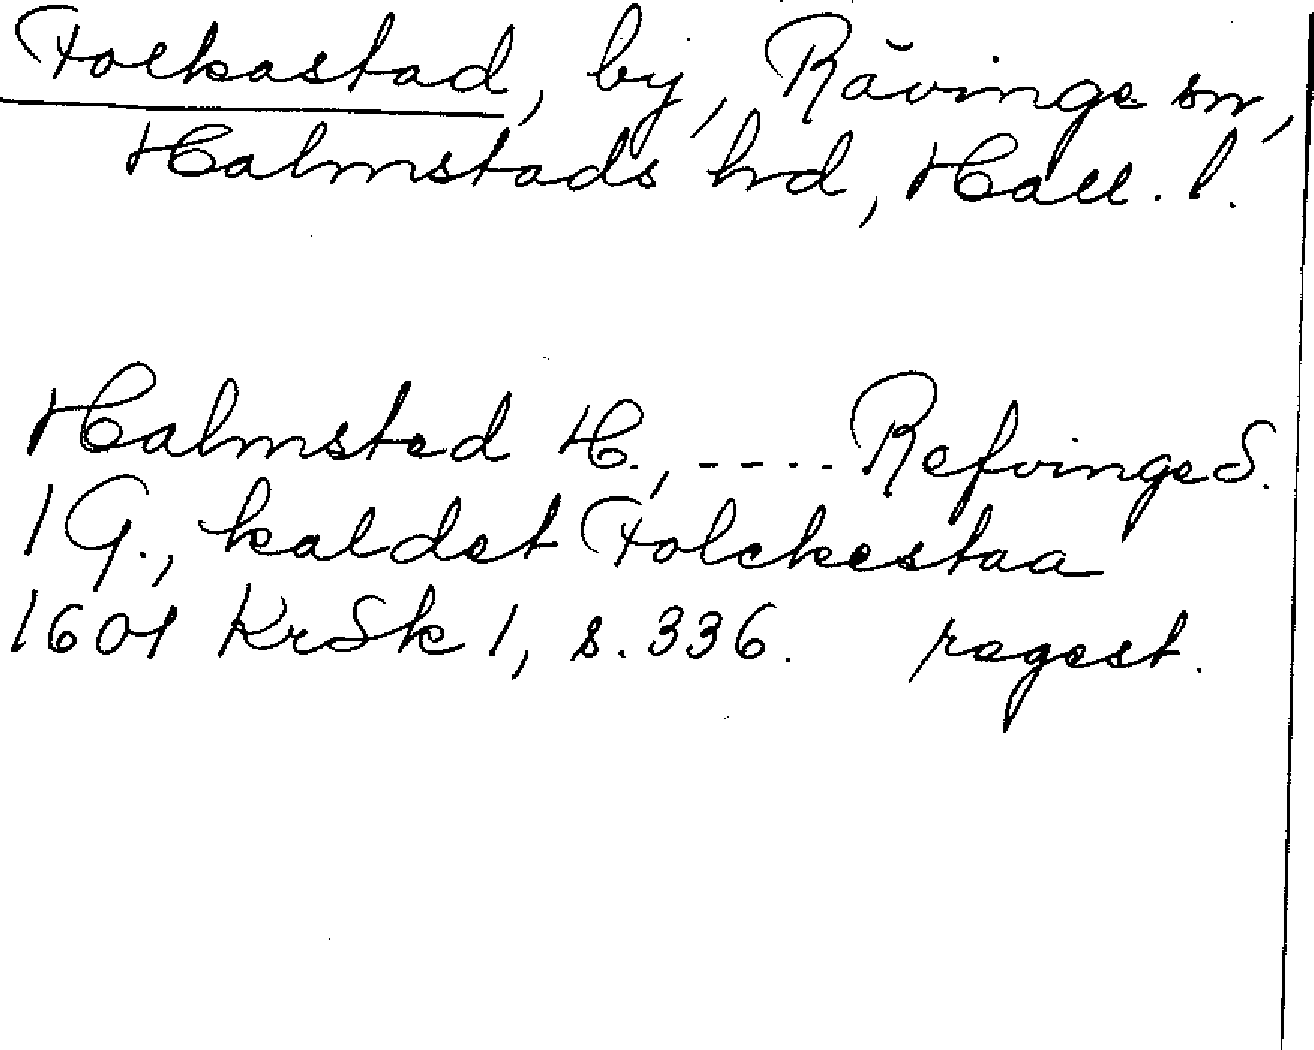 Folkastad, by, Rävinge sn,
Halmstads hrd, Hall. l.
Halmsted H., ---- Refvinge S.
1 G., kaldet Folckestaa
1601 KrSk 1, s. 336. regest.